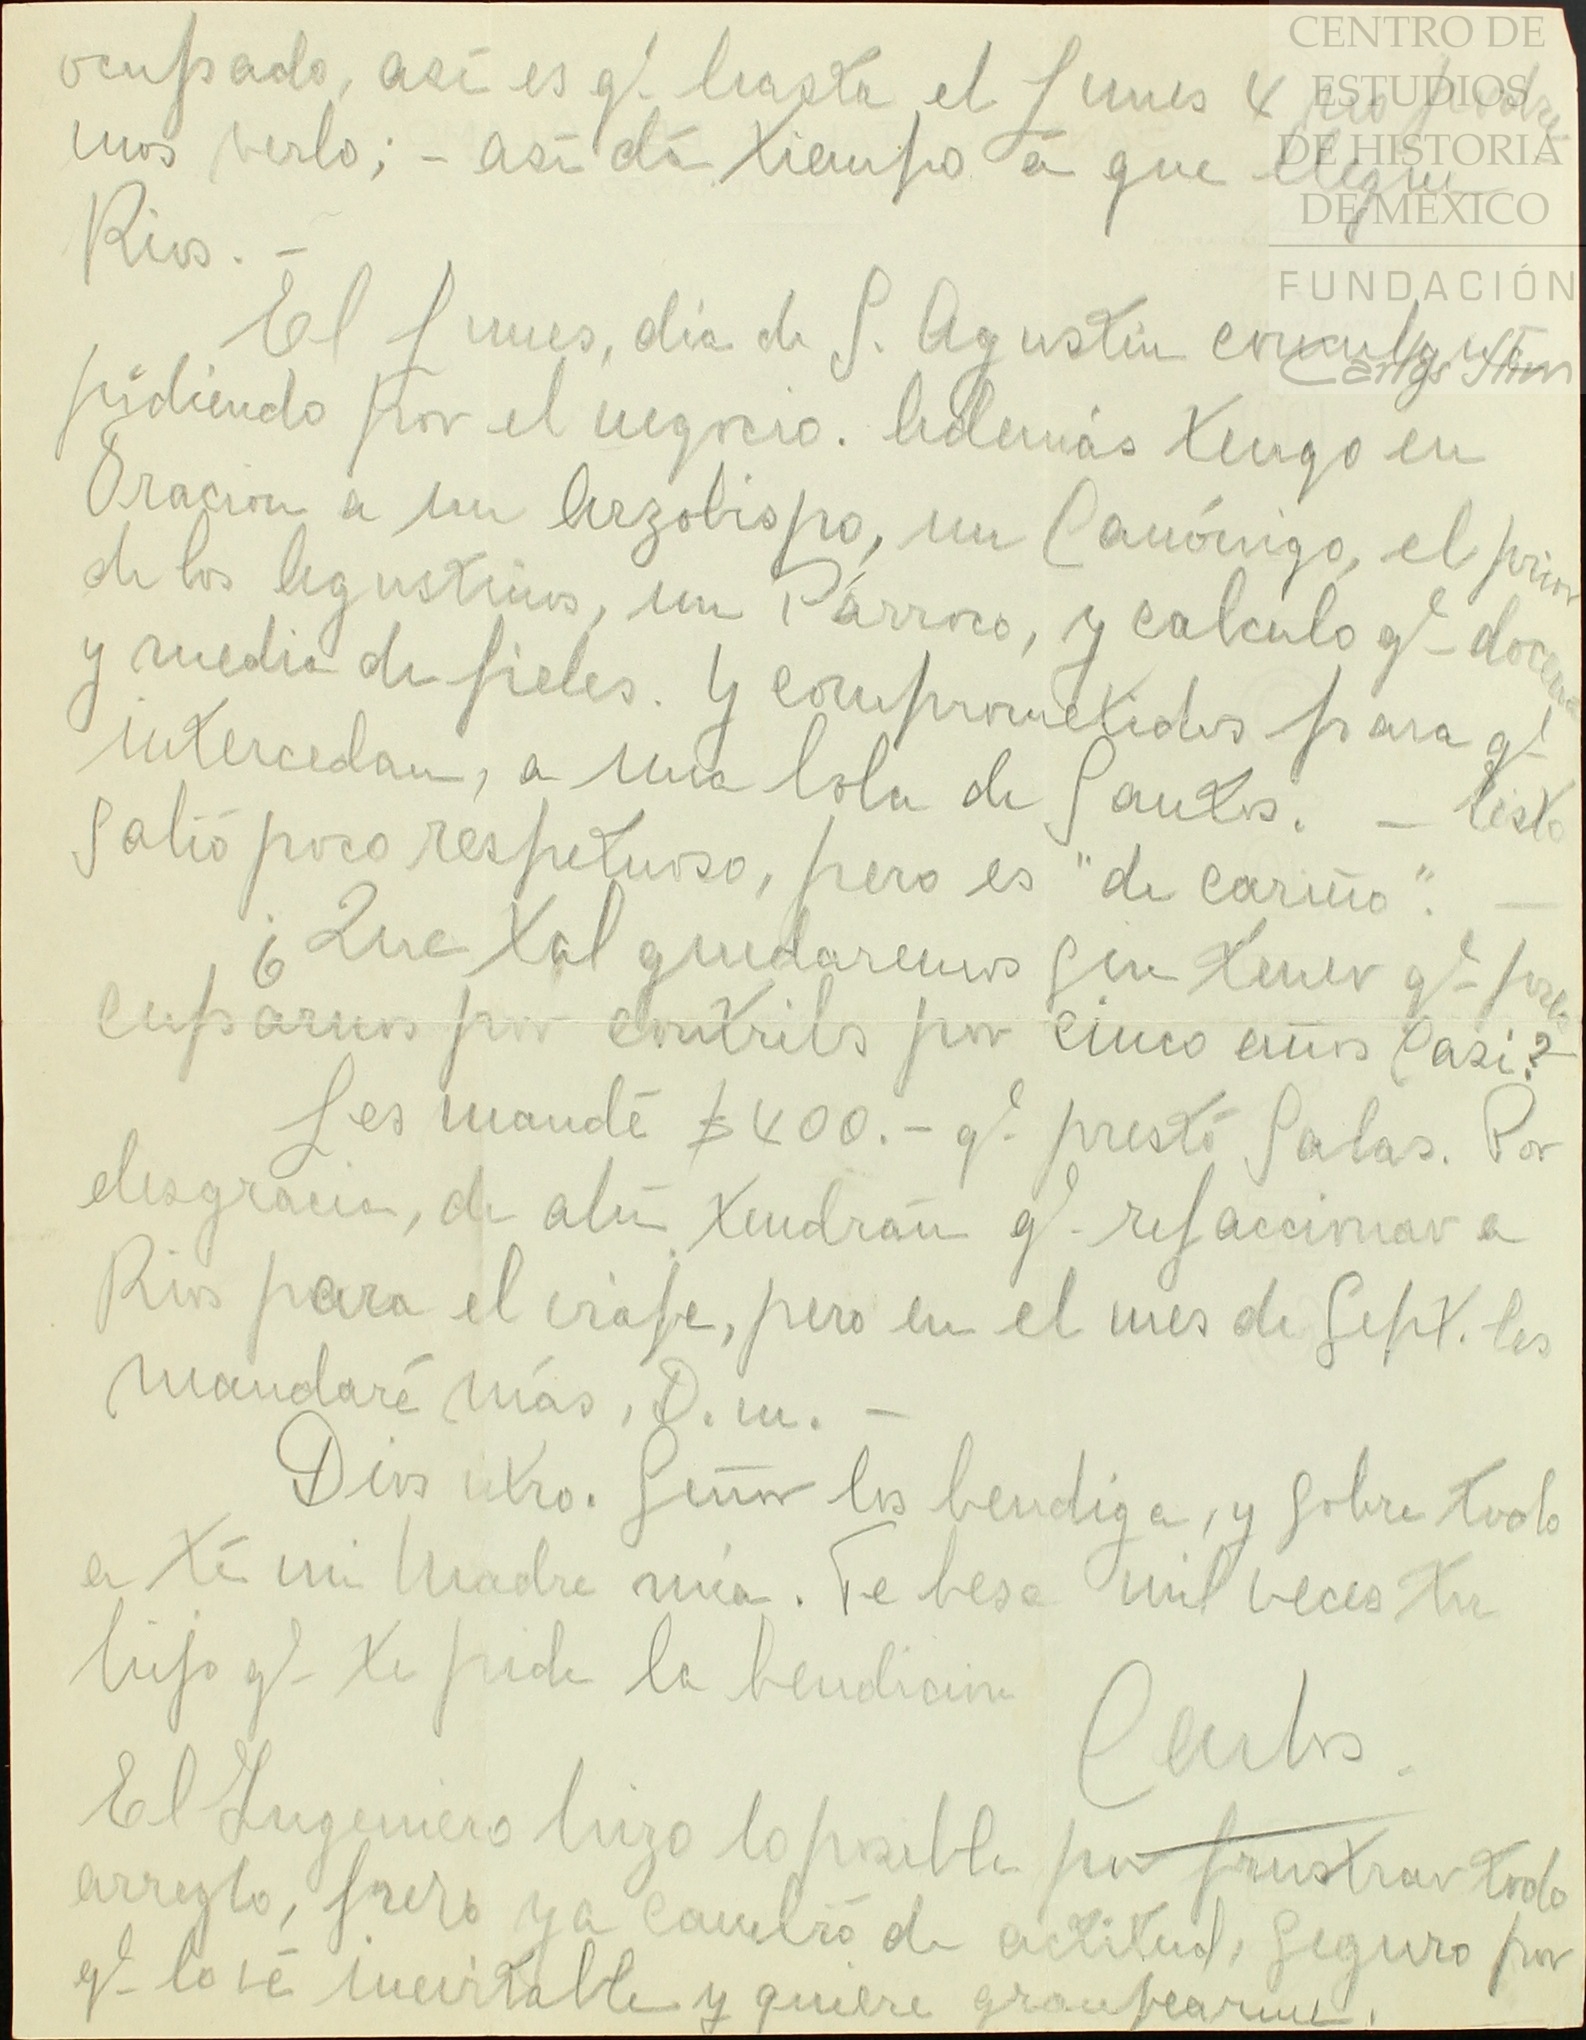 ocupado, así es q.' hasta el Lunes 4 no podre
mos verlo; - así dá tiempo á que llegue
Rios. -
El Lunes, dia de S. Agustin comulgué
pidiendo por el negocio. Además tengo en
Oracion a un Arzobispo, un Canónigo, el prior
de los Agustinos, un Párroco, y calculo q.' docena
y media de fieles. Y comprometidos para q.'
intercedan, a una bola de Santos. - Esto
Salió poco respetuoso, pero es "de cariño". -
¿Que tal quedaremos sin tener q.' preo
cuparnos por contribs por cinco años Casi?
Les mandé $400.- q.' prestó Salas. Por
desgracia, de ahí tendrán q.' refaccionar a
Rios para el viaje, pero en el mes de Sept. les
mandaré más, D. m. -
Dios ntro. Señor los bendiga, y sobre todo
a tí mi Madre mía. Te besa mil veces tu
hijo q.' te pide la bendicion
Carlos.
El Ingeniero hizo lo posible por frustrar todo
arreglo, pero ya cambió de actitud, seguro por
q.' lo vé inevitable y quiere granpearme.
CENTRO DE
ESTUDIOS
DE HISTORIA
DE MÉXICO
FUNDACIÓN
Carlos Slim